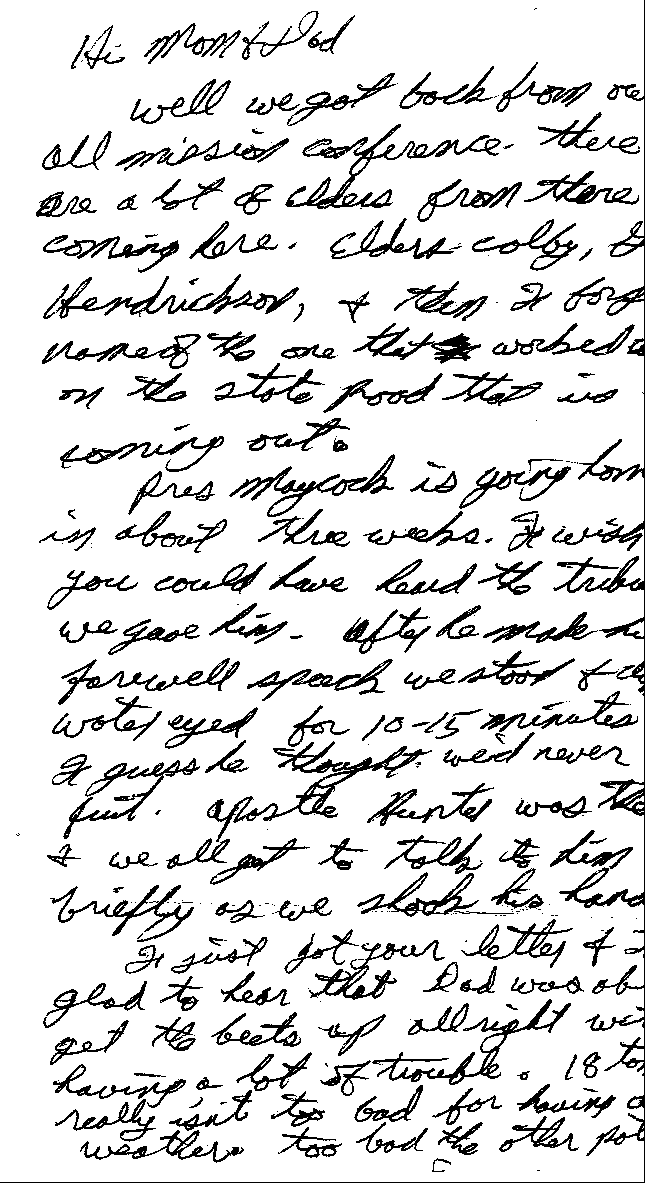 Hi Mom & Dad
well we got back from
all mission conference. there
are a lot of Elders from there
coming here. Elders Colby,
Hendrickson, & then I forg
name of the one that worked
on the state road that is
coming out.
Pres Maycock is going hom
in about three weeks. I wish
you could have heard the tribu
we gave him. After he made
farewell speach we stood &
watery eyed for 10-15 minutes
I guess he thought we'd never
quit. Apostle Hunter was the
& we all got to talk to him
briefly as we shook his hand
I just got your letter &
glad to hear that Dad was ab
get the beets up allright wi
having a lot of trouble. 18 to
really isn't too bad for having
weather. too bad the other pot